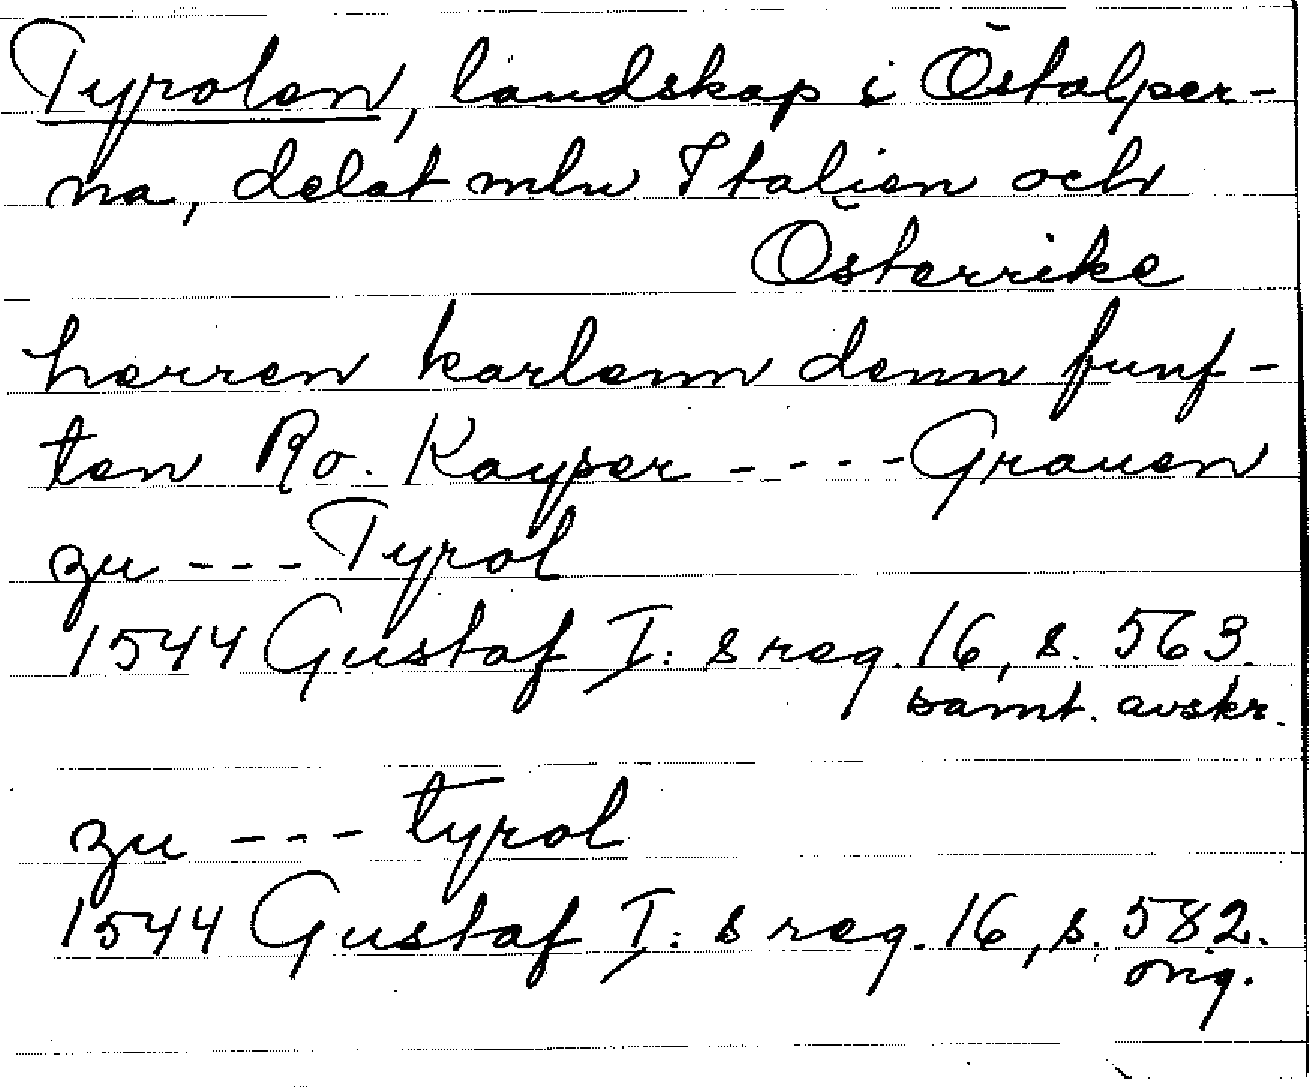 Tyrolen, landskap i Östalper-
na, delat mln Italien och
Österrike
herren karlenn denn funf-
ten Ro. Kayser ---- Grauen
zu --- Tyrol
1544 Gustaf I: s reg. 16, s. 563.
samt. avskr.
zu --- tyrol
1544 Gustaf I: s reg. 16, s. 582.
orig.